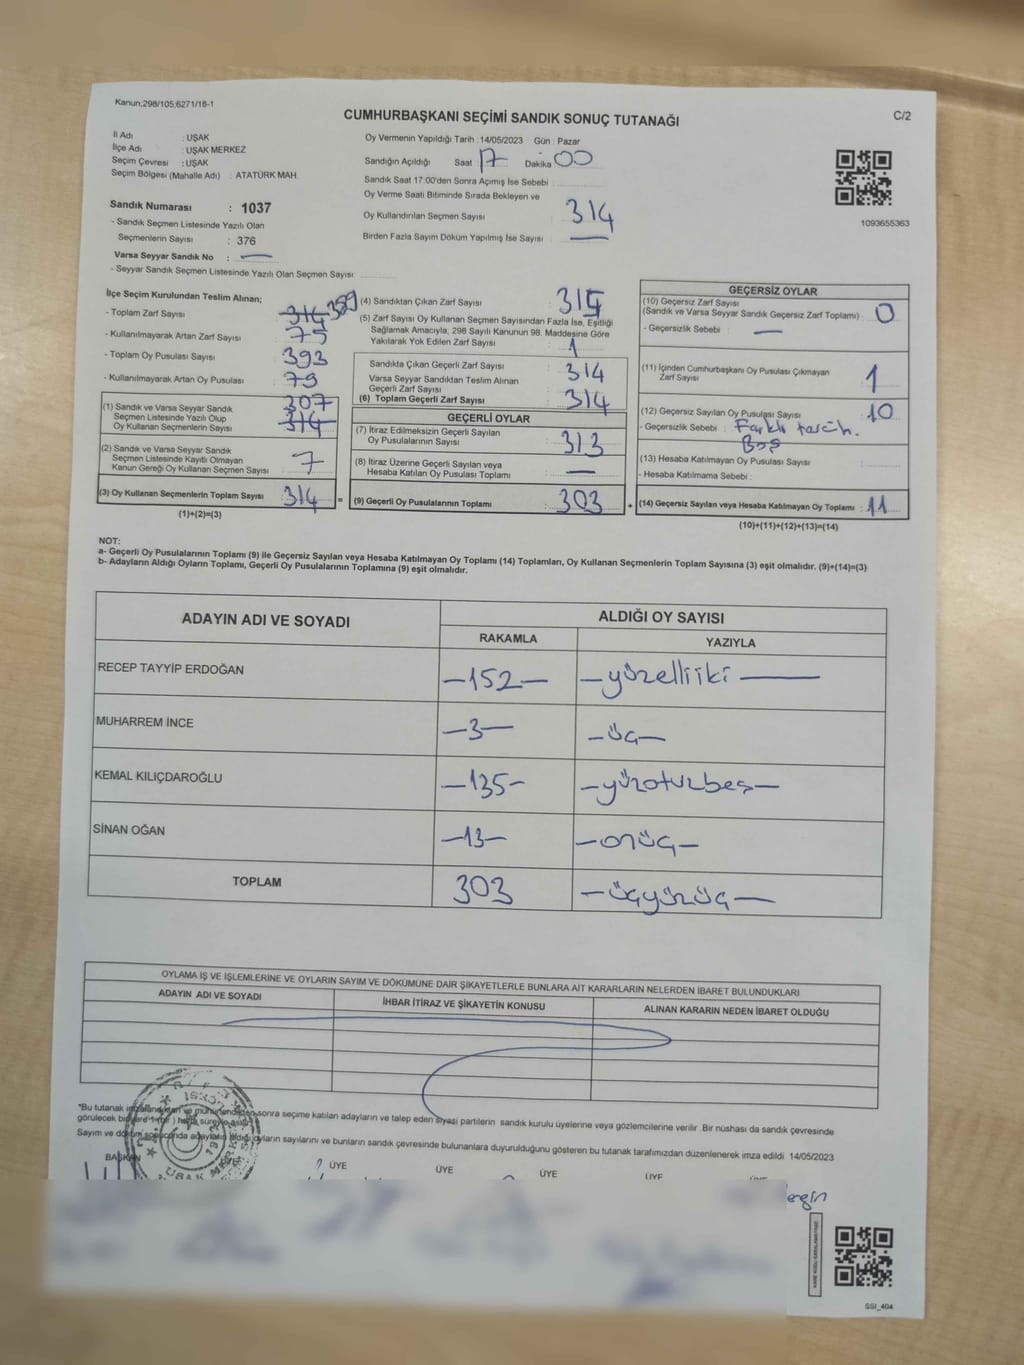 Kanun;298/105;6271/18-1
CUMHURBAŞKANI SEÇİMİ SANDIK SONUÇ TUTANAĞI
C/2
İl Adı : UŞAK
İlçe Adı : UŞAK MERKEZ
Seçim Çevresi : UŞAK
Seçim Bölgesi (Mahalle Adı) : ATATÜRK MAH.
Sandık Numarası : 1037
- Sandık Seçmen Listesinde Yazılı Olan
Seçmenlerin Sayısı : 376
Varsa Seyyar Sandık No : —
- Seyyar Sandık Seçmen Listesinde Yazılı Olan Seçmen Sayısı
Oy Vermenin Yapıldığı Tarih : 14/05/2023 Gün : Pazar
Sandığın Açıldığı Saat 17 Dakika 00
Sandık Saat 17:00'den Sonra Açımış İse Sebebi
Oy Verme Saati Bitiminde Sırada Bekleyen ve
Oy Kullandırılan Seçmen Sayısı 314
Birden Fazla Sayım Döküm Yapılmış İse Sayısı —
1093655363
İlçe Seçim Kurulundan Teslim Alınan;
- Toplam Zarf Sayısı 314 389
- Kullanılmayarak Artan Zarf Sayısı 75
- Toplam Oy Pusulası Sayısı 393
- Kullanılmayarak Artan Oy Pusulası 79
(1) Sandık ve Varsa Seyyar Sandık
Seçmen Listesinde Yazılı Olup
Oy Kullanan Seçmenlerin Sayısı 307 314
(2) Sandık ve Varsa Seyyar Sandık
Seçmen Listesinde Kayıtlı Olmayan
Kanun Gereği Oy Kullanan Seçmen Sayısı 7
(3) Oy Kullanan Seçmenlerin Toplam Sayısı : 314 =
(1)+(2)=(3)
(4) Sandıktan Çıkan Zarf Sayısı 315
(5) Zarf Sayısı Oy Kullanan Seçmen Sayısından Fazla İse, Eşitliği
Sağlamak Amacıyla, 298 Sayılı Kanunun 98. Maddesine Göre
Yakılarak Yok Edilen Zarf Sayısı 1
Sandıkta Çıkan Geçerli Zarf Sayısı 314
Varsa Seyyar Sandıktan Teslim Alınan
Geçerli Zarf Sayısı
(6) Toplam Geçerli Zarf Sayısı 314
GEÇERLİ OYLAR
(7) İtiraz Edilmeksizin Geçerli Sayılan
Oy Pusulalarının Sayısı 313
(8) İtiraz Üzerine Geçerli Sayılan veya
Hesaba Katılan Oy Pusulası Toplamı : —
(9) Geçerli Oy Pusulalarının Toplamı : 303 +
GEÇERSİZ OYLAR
(10) Geçersiz Zarf Sayısı
(Sandık ve Varsa Seyyar Sandık Geçersiz Zarf Toplamı) : 0
- Geçersizlik Sebebi : —
(11) İçinden Cumhurbaşkanı Oy Pusulası Çıkmayan
Zarf Sayısı 1
(12) Geçersiz Sayılan Oy Pusulası Sayısı : 10
- Geçersizlik Sebebi : Farklı tercih.
Boş
(13) Hesaba Katılmayan Oy Pusulası Sayısı
- Hesaba Katılmama Sebebi :
(14) Geçersiz Sayılan veya Hesaba Katılmayan Oy Toplamı : 11
(10)+(11)+(12)+(13)=(14)
NOT:
a- Geçerli Oy Pusulalarının Toplamı (9) ile Geçersiz Sayılan veya Hesaba Katılmayan Oy Toplamı (14) Toplamları, Oy Kullanan Seçmenlerin Toplam Sayısına (3) eşit olmalıdır. (9)+(14)=(3)
b- Adayların Aldığı Oyların Toplamı, Geçerli Oy Pusulalarının Toplamına (9) eşit olmalıdır.
ADAYIN ADI VE SOYADI
ALDIĞI OY SAYISI
RAKAMLA YAZIYLA
RECEP TAYYİP ERDOĞAN —152— —yüzelliiki—
MUHARREM İNCE —3— —üç—
KEMAL KILIÇDAROĞLU —135— —yüzotuzbeş—
SİNAN OĞAN —13— —onüç—
TOPLAM 303 —üçyüzüç—
OYLAMA İŞ VE İŞLEMLERİNE VE OYLARIN SAYIM VE DÖKÜMÜNE DAİR ŞİKAYETLERLE BUNLARA AİT KARARLARIN NELERDEN İBARET BULUNDUKLARI
ADAYIN ADI VE SOYADI İHBAR İTİRAZ VE ŞİKAYETİN KONUSU ALINAN KARARIN NEDEN İBARET OLDUĞU
*Bu tutanak sonra seçime katılan adayların ve talep eden siyasi partilerin sandık kurulu üyelerine veya gözlemcilerine verilir. Bir nüshası da sandık çevresinde
görülecek bir süreyle asılır.
Sayım ve döküm sonucunda adayların aldığı oyların sayılarını ve bunların sandık çevresinde bulunanlara duyurulduğunu gösteren bu tutanak tarafımızdan düzenlenerek imza edildi. 14/05/2023
BAŞKAN ÜYE ÜYE ÜYE ÜYE
SSI_404